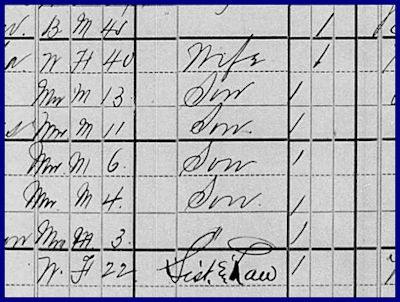 B M 45 1
W F 40 Wife 1
Mu M 13 Son 1
Mu M 11 Son 1
Mu M 6 Son 1
Mu M 4 Son 1
Mu M 3 " 1
W F 22 Sist in Law 1